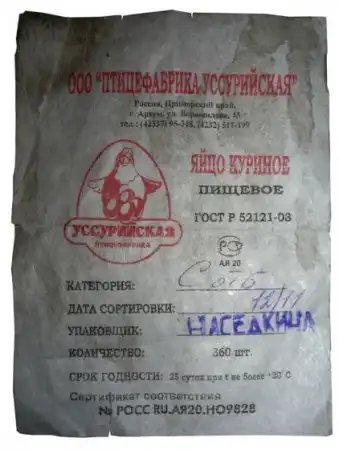 ООО "ПТИЦЕФАБРИКА УССУРИЙСКАЯ"
Россия, Приморский край,
г. Артем, ул.
УССУРИЙСКАЯ
птицефабрика
ЯЙЦО КУРИНОЕ
ПИЩЕВОЕ
ГОСТ Р 52121-03
АЯ 20
КАТЕГОРИЯ: С отб
ДАТА СОРТИРОВКИ: 12/11
УПАКОВЩИК: НАСЕДКИНА
КОЛИЧЕСТВО: 360 шт.
СРОК ГОДНОСТИ: 25 суток при t не более +20°С
Сертификат соответствия
№ РОСС RU.АЯ20.НО9828